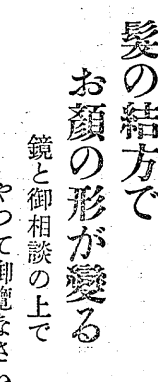 髮の結方で
お顏の形が變る
鏡と御相談の上で
やつて御覽なさい